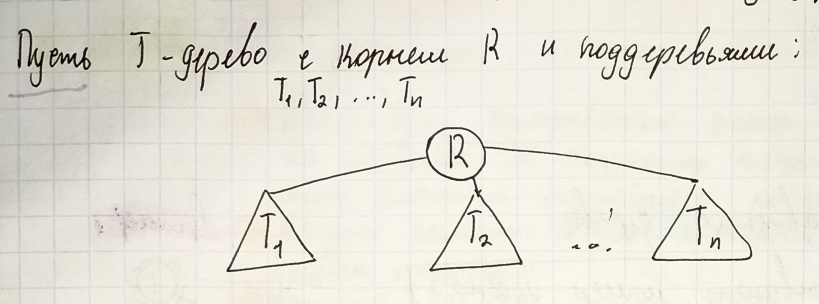 Пусть T - дерево с корнем R и поддеревьями:
T₁, T₂, ..., Tn
R
T₁ T₂ ... Tn